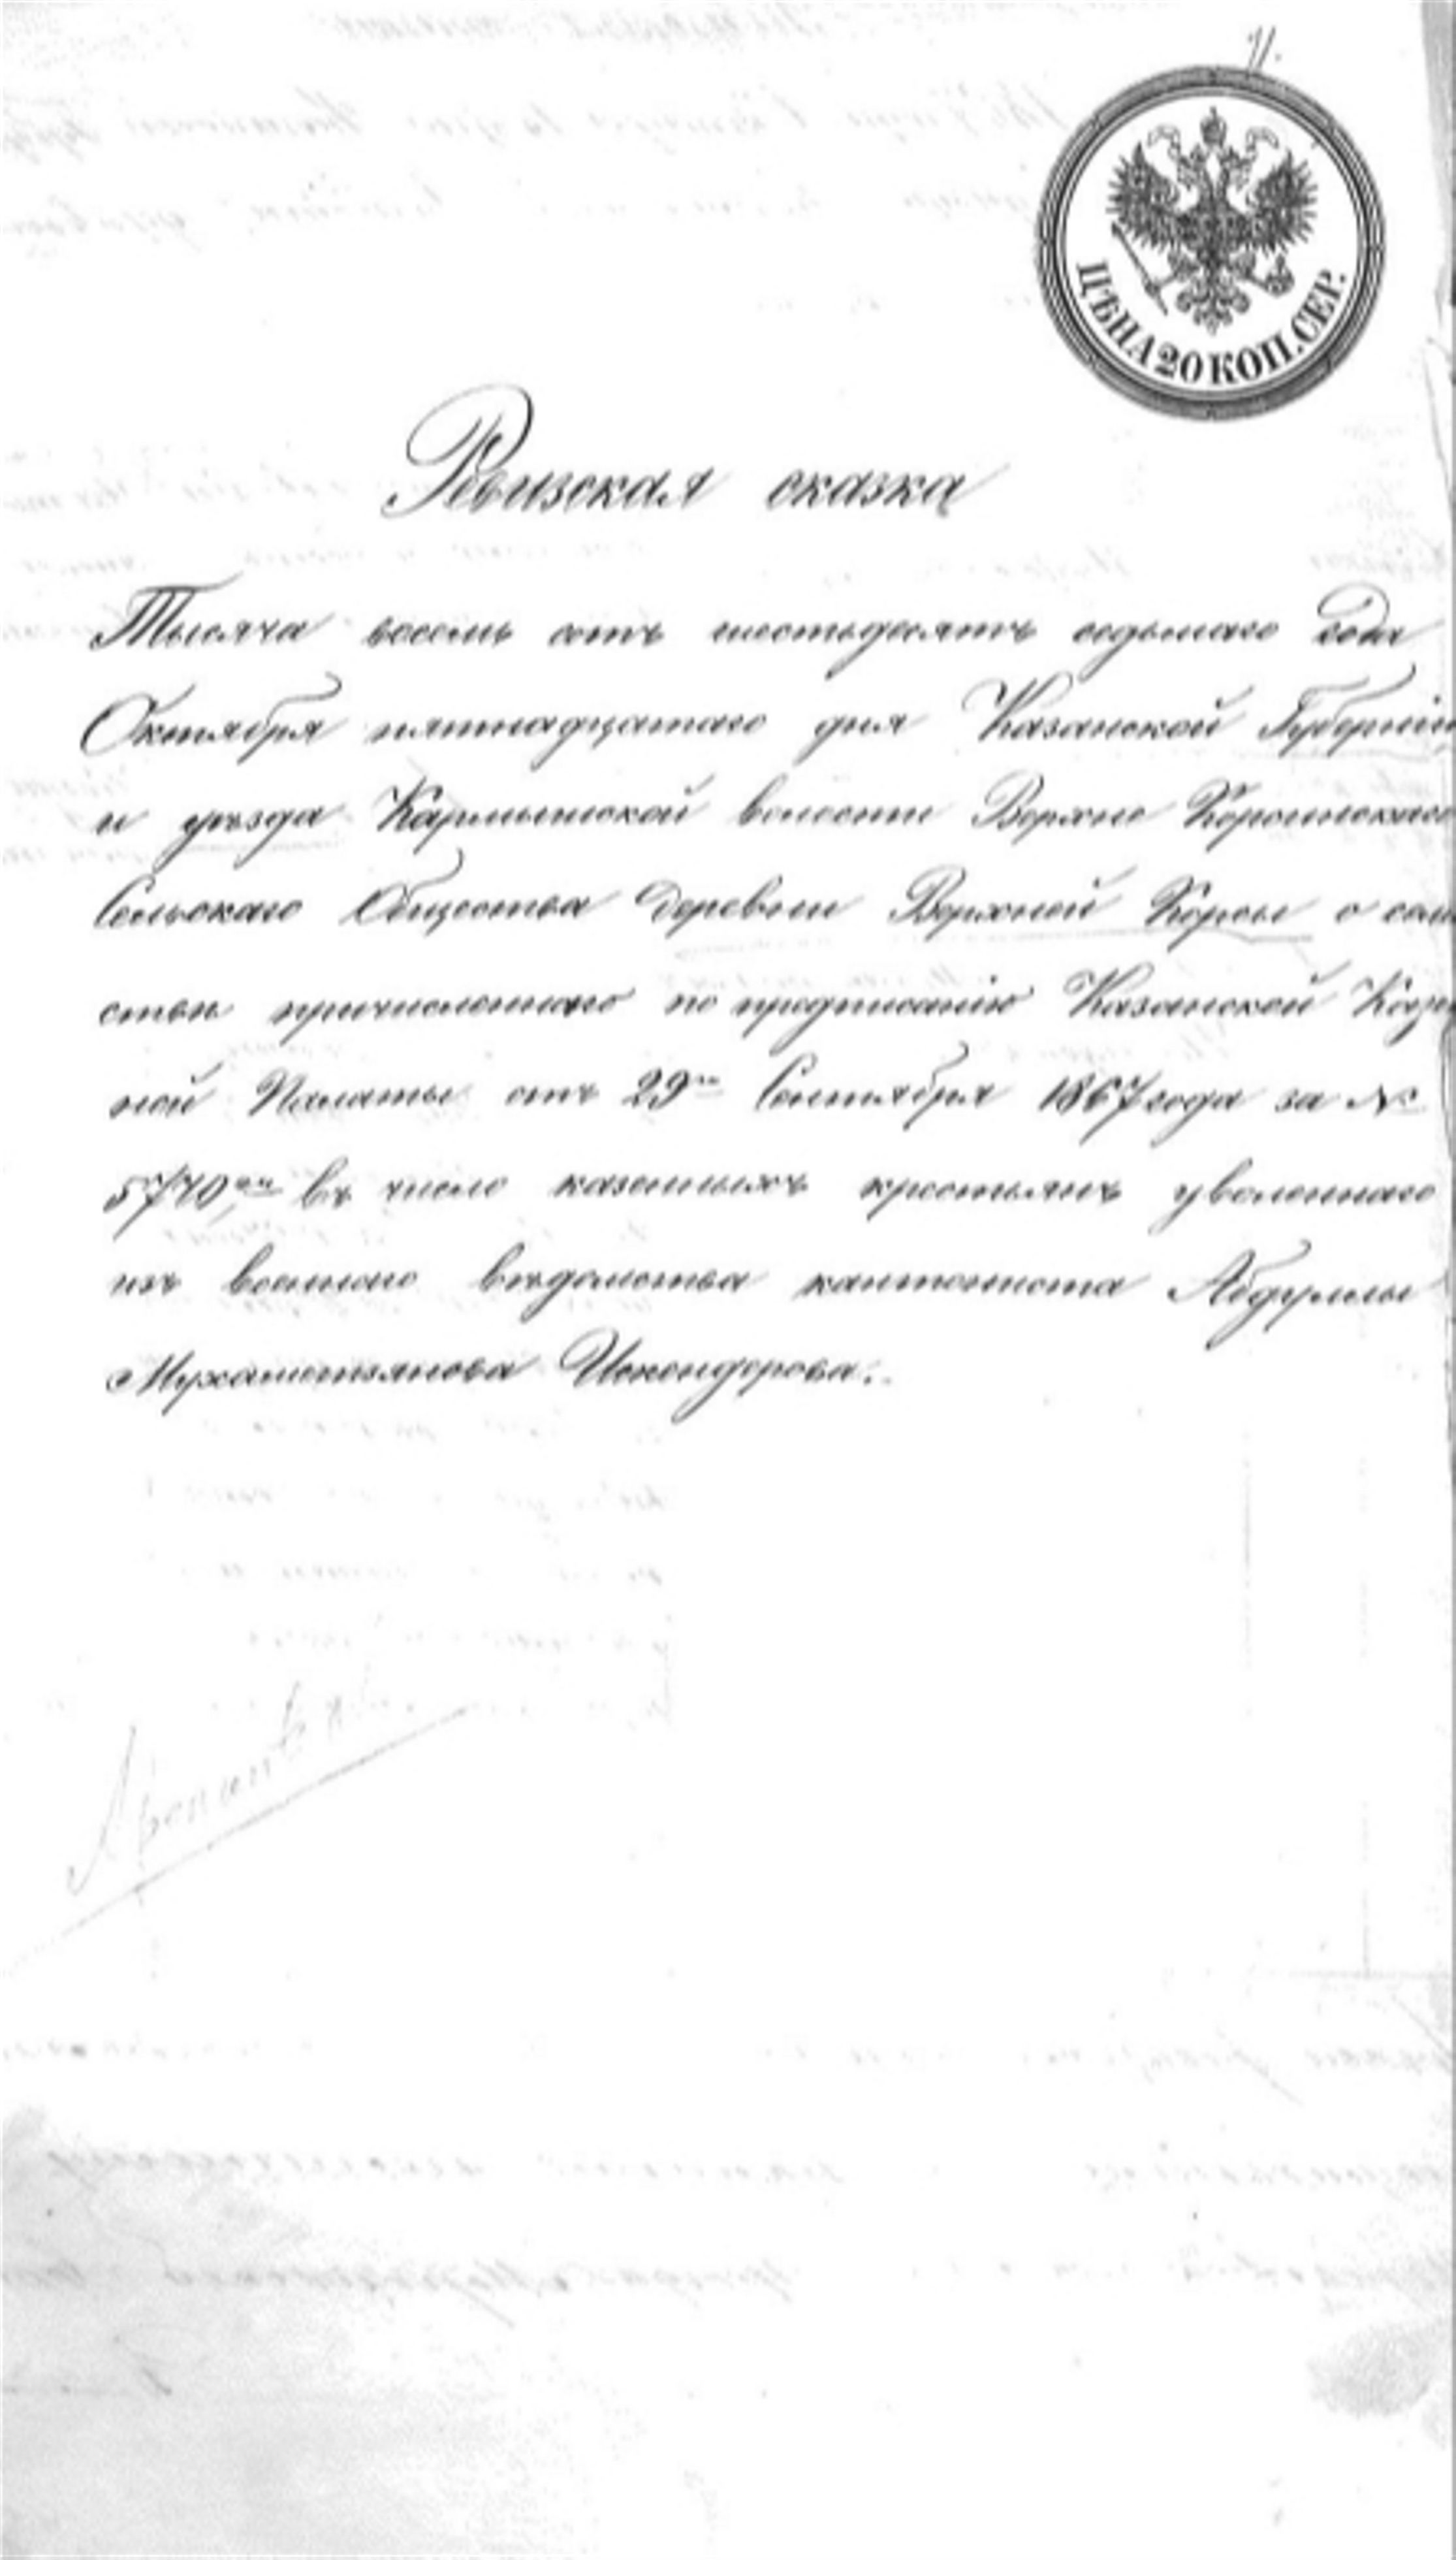 11.
ЦѢНА 20 КОП. СЕР.
Ревизская сказка
Тысяча восемь сотъ шестьдесятъ седьмаго года
Октября пятнадцатаго дня Казанской Губерніи
и уѣзда Кармышской волости Верхне Корсинскаго
Сельскаго Общества деревни Верхней Корсы о семе
ствѣ причисленнаго по предписанію Казанской Казен
ной Палаты отъ 29го Сентября 1867 года за №
5770мъ въ число казенныхъ крестьянъ уволеннаго
изъ военнаго вѣдомства кантониста Абдуллы
Мухаметзянова Искендерова.